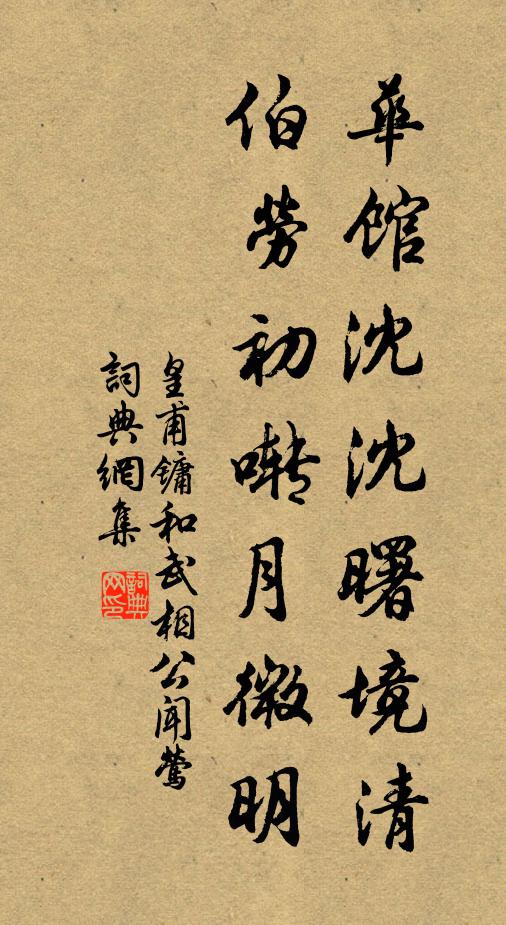 華館沈沈曙境清
伯勞初囀月微明
皇甫鏞和武相公聞鶯
詞典網集
詞典网印